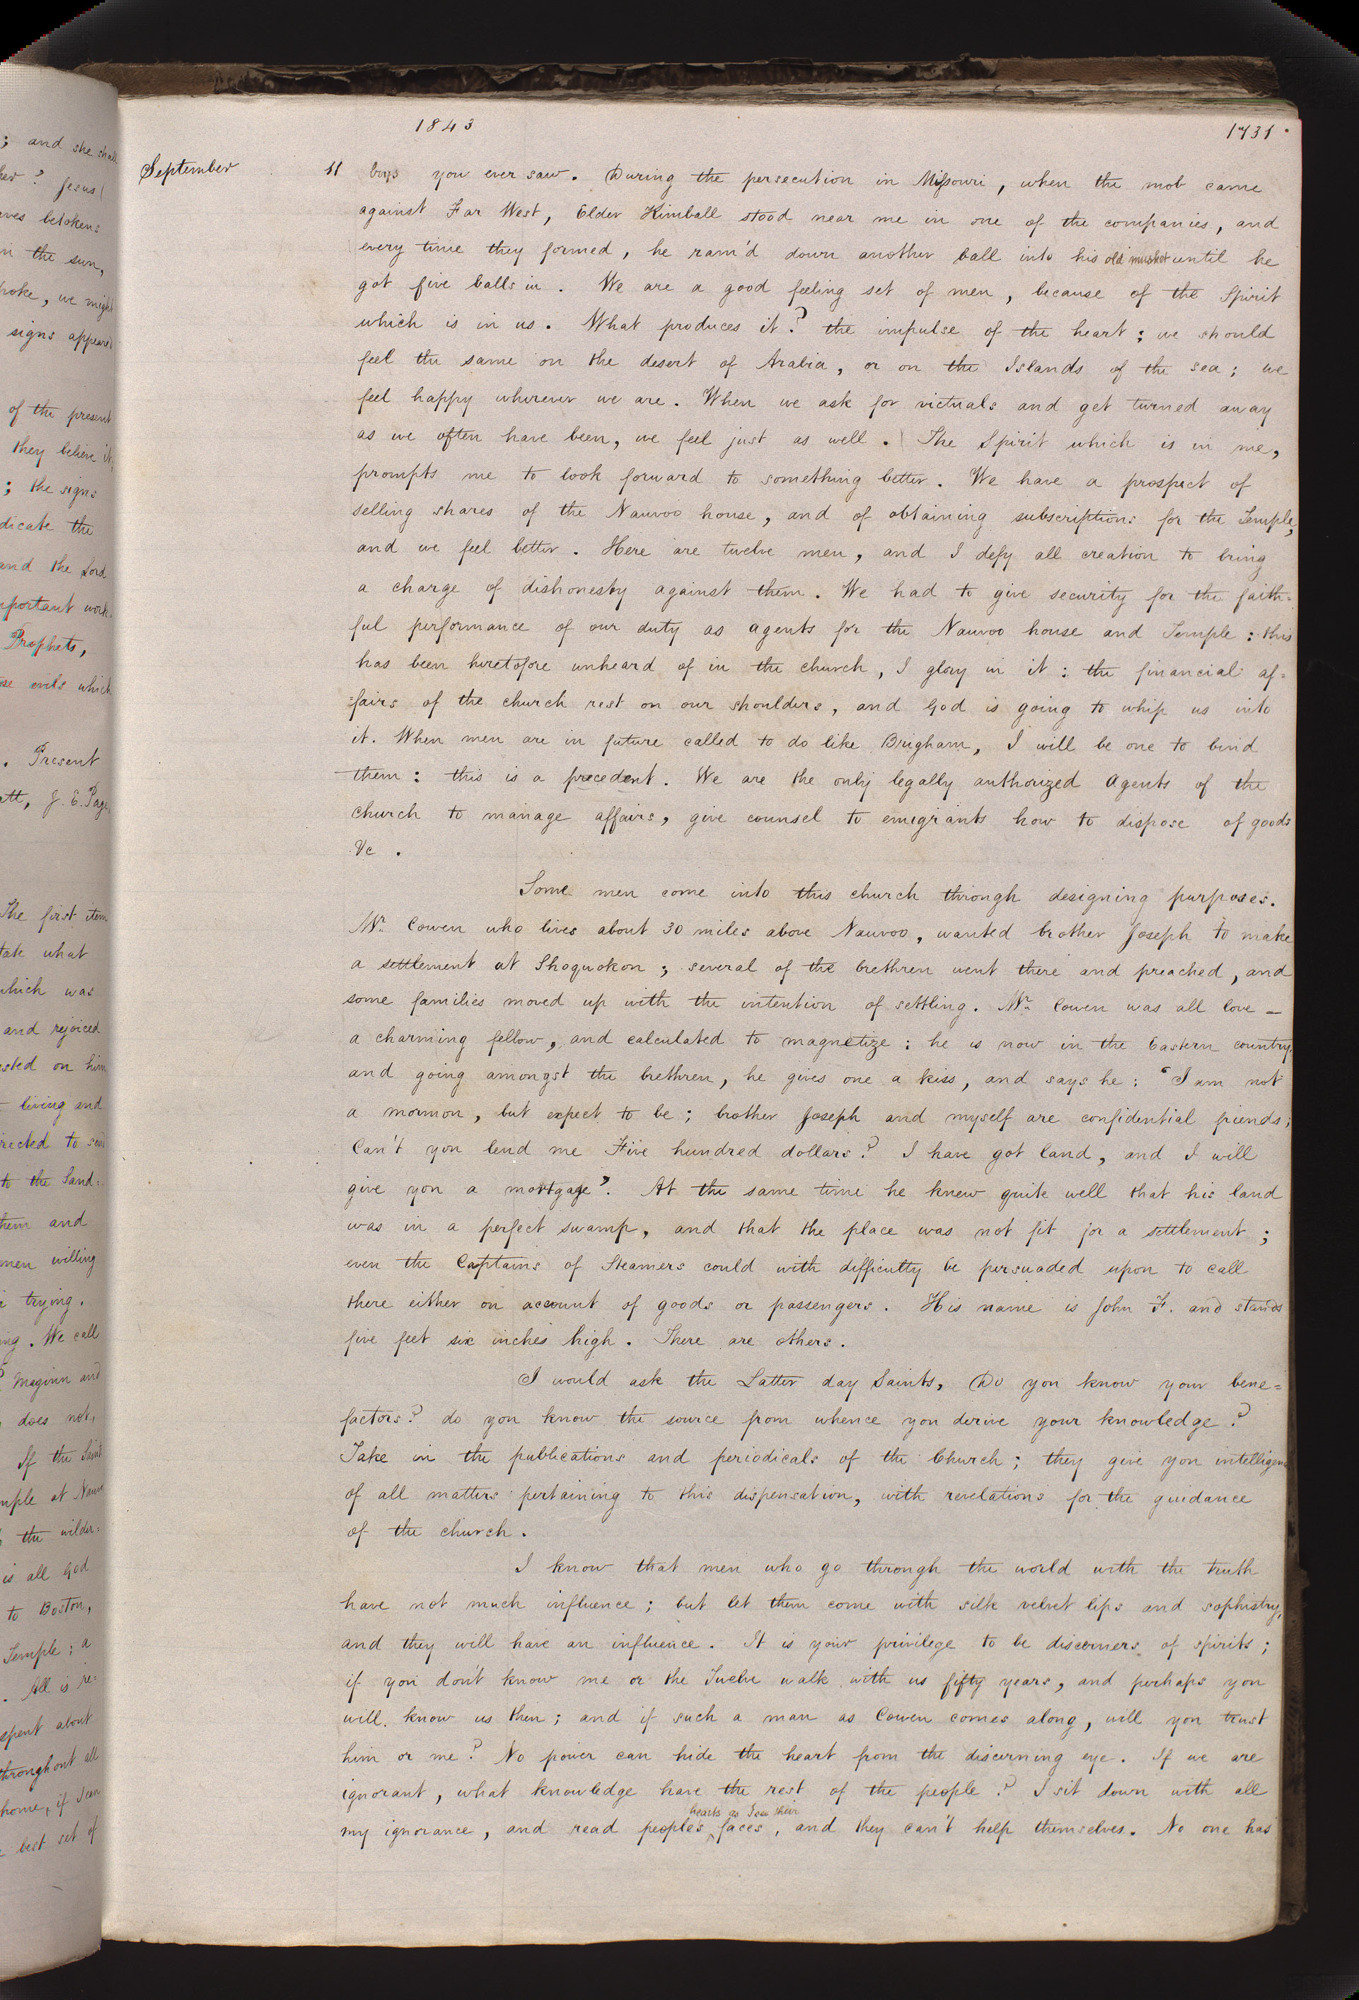 ; and she shall
her? Jesus
aves betokens
in the sun,
spoke, we might
signs appeared
of the present
they believe it,
; the signs
dicate the
and the Lord
mportant work.
Prophets,
se evils which
. Present
att, J. E. Page,
The first item
tate what
which was
and rejoiced
ested on him
living and
rected to send
to the Land=
them and
men willing
trying.
ng. We call
? Maginn and
does not,
If the Saints
mple at Nauv
the wilder=
is all God
to Boston,
Temple; a
. All is re=
spent about
throughout all
home, if I can
best set of
1843
1731.
September
11 boys you ever saw. During the persecution in Missouri, when the mob came
against Far West, Elder Kimball stood near me in one of the companies, and
every time they formed, he ram'd down another ball into his old musket until he
got five balls in. We are a good feeling set of men, because of the Spirit
which is in us. What produces it? the impulse of the heart; we should
feel the same on the desert of Arabia, or on the Islands of the sea; we
feel happy wherever we are. When we ask for victuals and get turned away
as we often have been, we feel just as well. The Spirit which is in me,
prompts me to look forward to something better. We have a prospect of
selling shares of the Nauvoo house, and of obtaining subscriptions for the Temple,
and we feel better. Here are twelve men, and I defy all creation to bring
a charge of dishonesty against them. We had to give security for the faith=
ful performance of our duty as agents for the Nauvoo house and Temple: this
has been heretofore unheard of in the church, I glory in it: the financial af=
=fairs of the church rest on our shoulders, and God is going to whip us into
it. When men are in future called to do like Brigham, I will be one to bind
them: this is a precedent. We are the only legally authorized agents of the
church to manage affairs, give counsel to emigrants how to dispose of goods
&c.
Some men come into this church through designing purposes.
Mr. Cowen who lives about 30 miles above Nauvoo, wanted brother Joseph to make
a settlement at Shoquokon; several of the brethren went there and preached, and
some families moved up with the intention of settling. Mr. Cowen was all love —
a charming fellow, and calculated to magnetize: he is now in the Eastern country,
and going amongst the brethren, he gives one a kiss, and says he: "I am not
a mormon, but expect to be; brother Joseph and myself are confidential friends;
Can't you lend me Five hundred dollars? I have got land, and I will
give you a mortgage". At the same time he knew quite well that his land
was in a perfect swamp, and that the place was not fit for a settlement;
even the Captains of Steamers could with difficulty be persuaded upon to call
there either on account of goods or passengers. His name is John F. and stands
five feet six inches high. There are others.
I would ask the Latter day Saints, Do you know your bene=
factors? do you know the source from whence you derive your knowledge?
Take in the publications and periodicals of the Church; they give you intelligence
of all matters pertaining to this dispensation, with revelations for the guidance
of the church.
I know that men who go through the world with the truth
have not much influence; but let them come with silk velvet lips and sophistry,
and they will have an influence. It is your privilege to be discerners of spirits;
if you don't know me or the Twelve walk with us fifty years, and perhaps you
will know us then; and if such a man as Cowen comes along, will you trust
him or me? No power can hide the heart from the discerning eye. If we are
ignorant, what knowledge have the rest of the people? I sit down with all
hearts as I see their
my ignorance, and read people's faces, and they can't help themselves. No one has